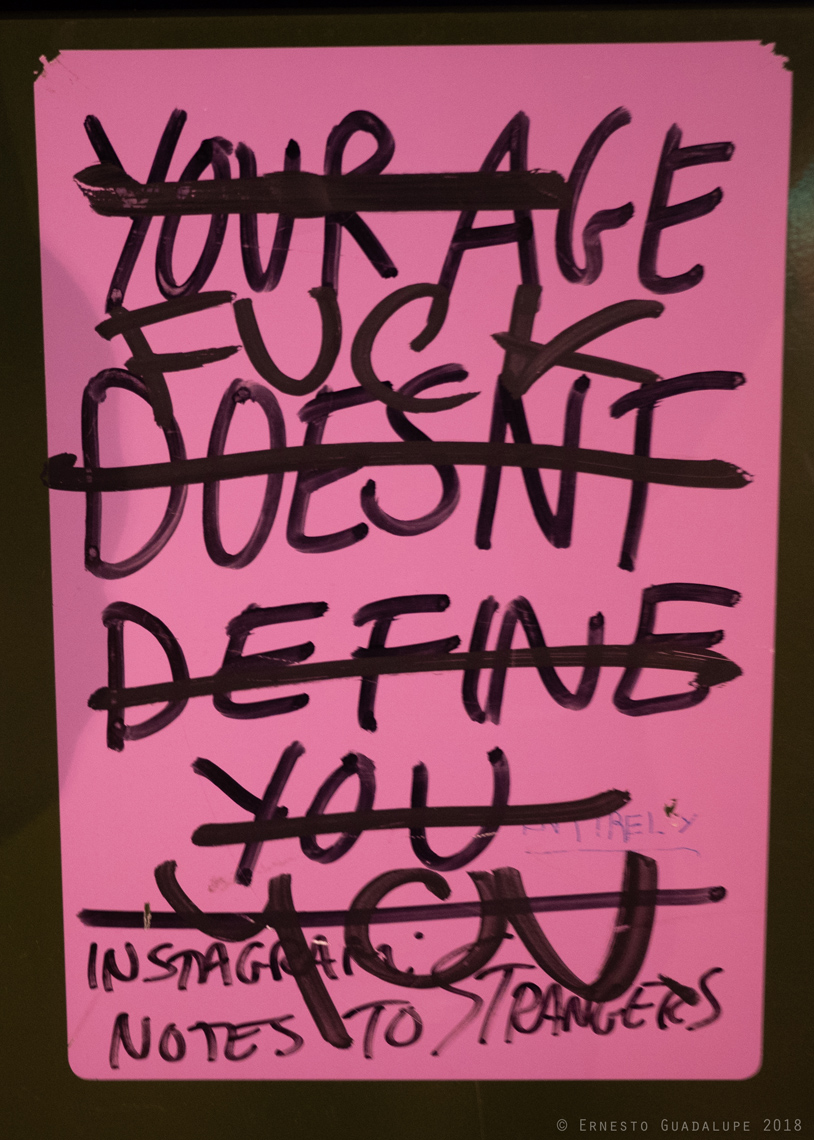 YOUR AGE
FUCK
DOESNT
DEFINE
YOU
ENTIRELY
YOU
INSTAGRAM:
NOTES TO STRANGERS
© ERNESTO GUADALUPE 2018